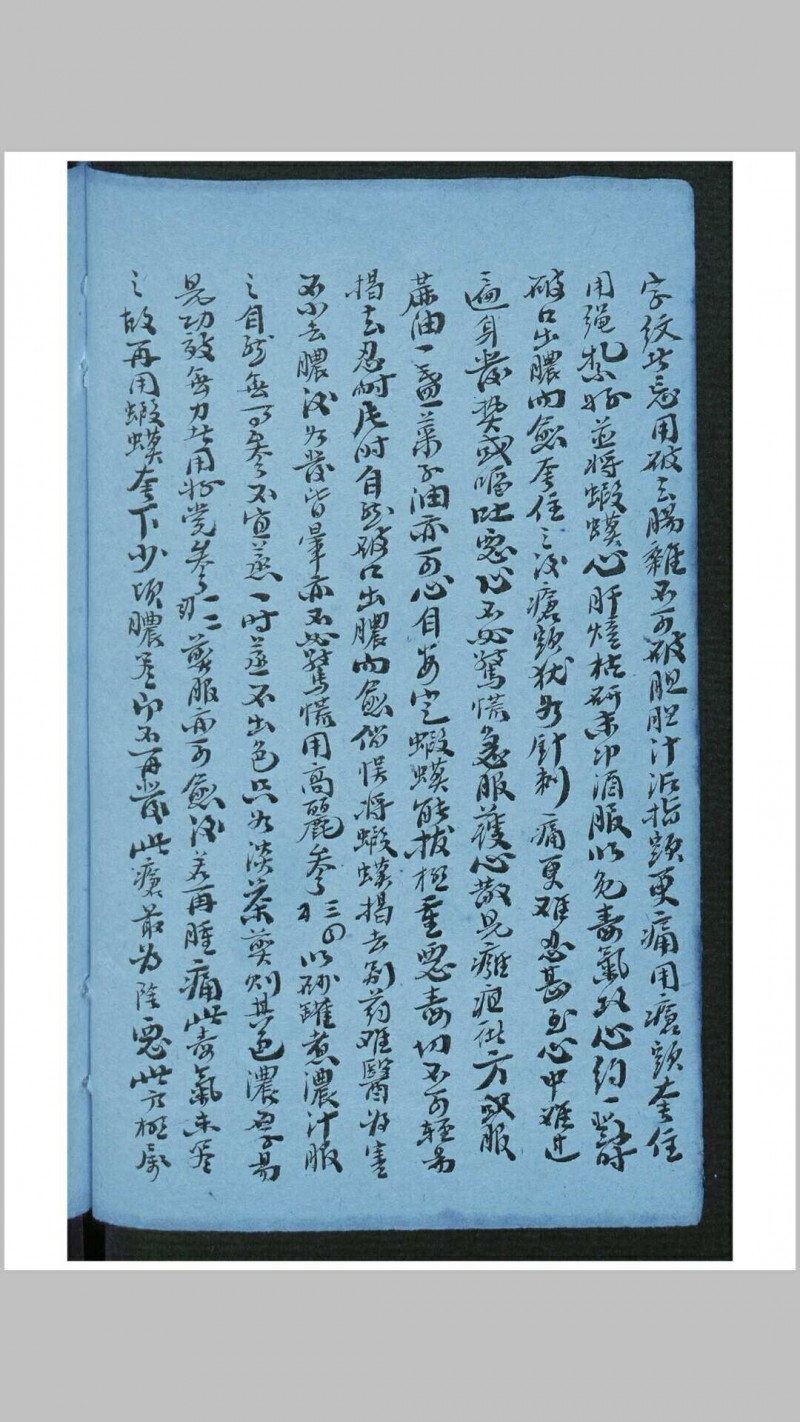 字紋者忌用破去腸雜不可破胆胆汁沾指頭更痛用瘡頭套住
用繩扎好並將蝦蟆心肝焙枯研末冲酒服以免毒氣攻心約一時
破口出膿而愈套住之後瘡頭状如針刺痛更难忍甚至心中難过
遍身發热或嘔吐惡心不必驚慌急服護心散見癰疽門方或服
蔴油一盞菜子油亦可心自安定蝦蟆能拔極重惡毒切不可輕易
揭去忍耐片时自然破口出膿而愈倘悮將蝦蟆揭去別药难醫为害
不小去膿後如發皆暈亦不必驚慌用高麗參三四以砂罐煮濃汁服
之自然無事參不宜蒸一时蒸不出色只如淡茶煎则其色濃厚易
見功效無力者用好党參一二煎服亦可愈後若再腫痛此毒氣未尽
之故再用蝦蟆套下少頃膿尽即不再發此瘡最为陰惡此方極